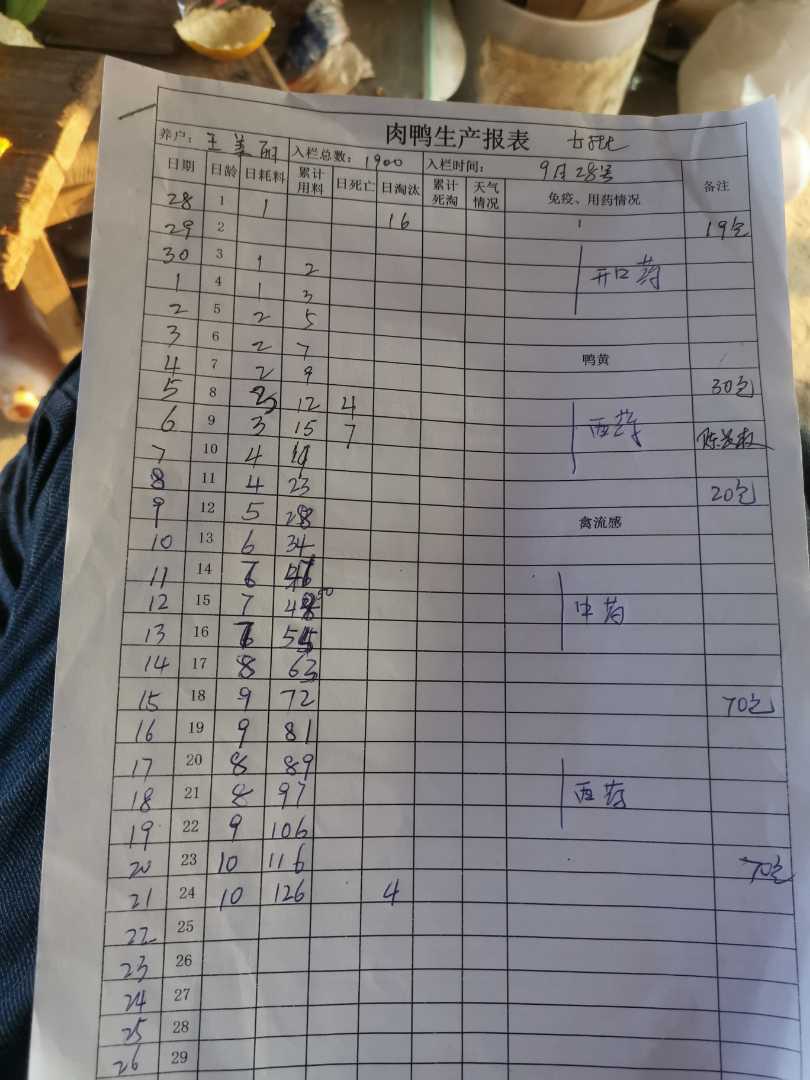 肉鸭生产报表
养户： 王美丽 入栏总数： 1900 入栏时间： 9月28号
日期 日龄 日耗料 累计用料 日死亡 日淘汰 累计死淘 天气情况 免疫、用药情况 备注
28 1 1
29 2 16 19包
30 3 1 2 开口药
1 4 1 3
2 5 2 5
3 6 2 7
4 7 2 9 鸭黄
5 8 3 12 4 30包
6 9 3 15 7 西药
7 10 4 19
8 11 4 23 20包
9 12 5 28 禽流感
10 13 6 34
11 14
12 15 7 中药
13 16
14 17 8 63
15 18 9 72 70包
16 19 9 81
17 20 8 89
18 21 8 97 西药
19 22 9 106
20 23 10 116 70包
21 24 10 126 4
22 25
23 26
24 27
25 28
26 29